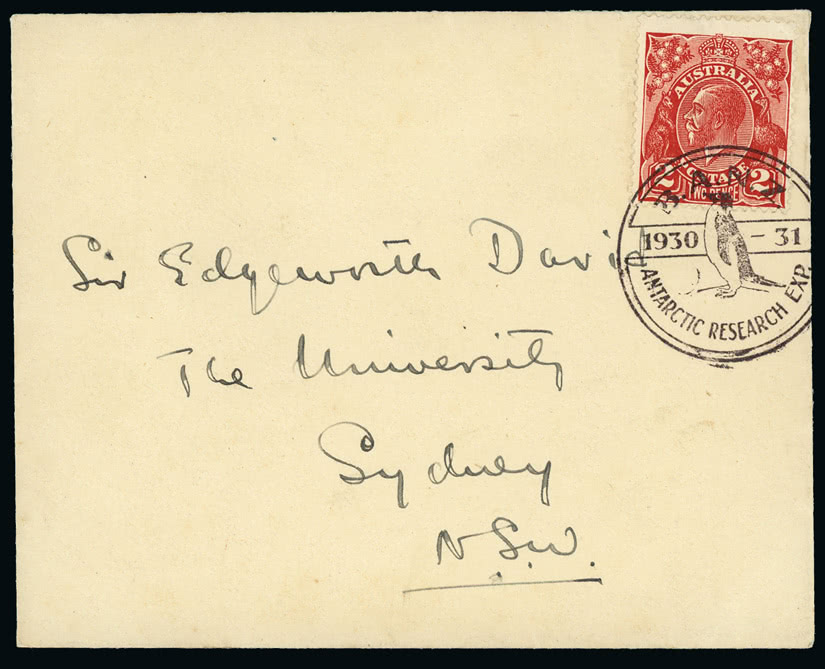 AUSTRALIA
POSTAGE
2 TWO PENCE 2
B.A.N.Z.
1930 - 31
ANTARCTIC RESEARCH EXP.
Sir Edgeworth David
The University
Sydney
N.S.W.